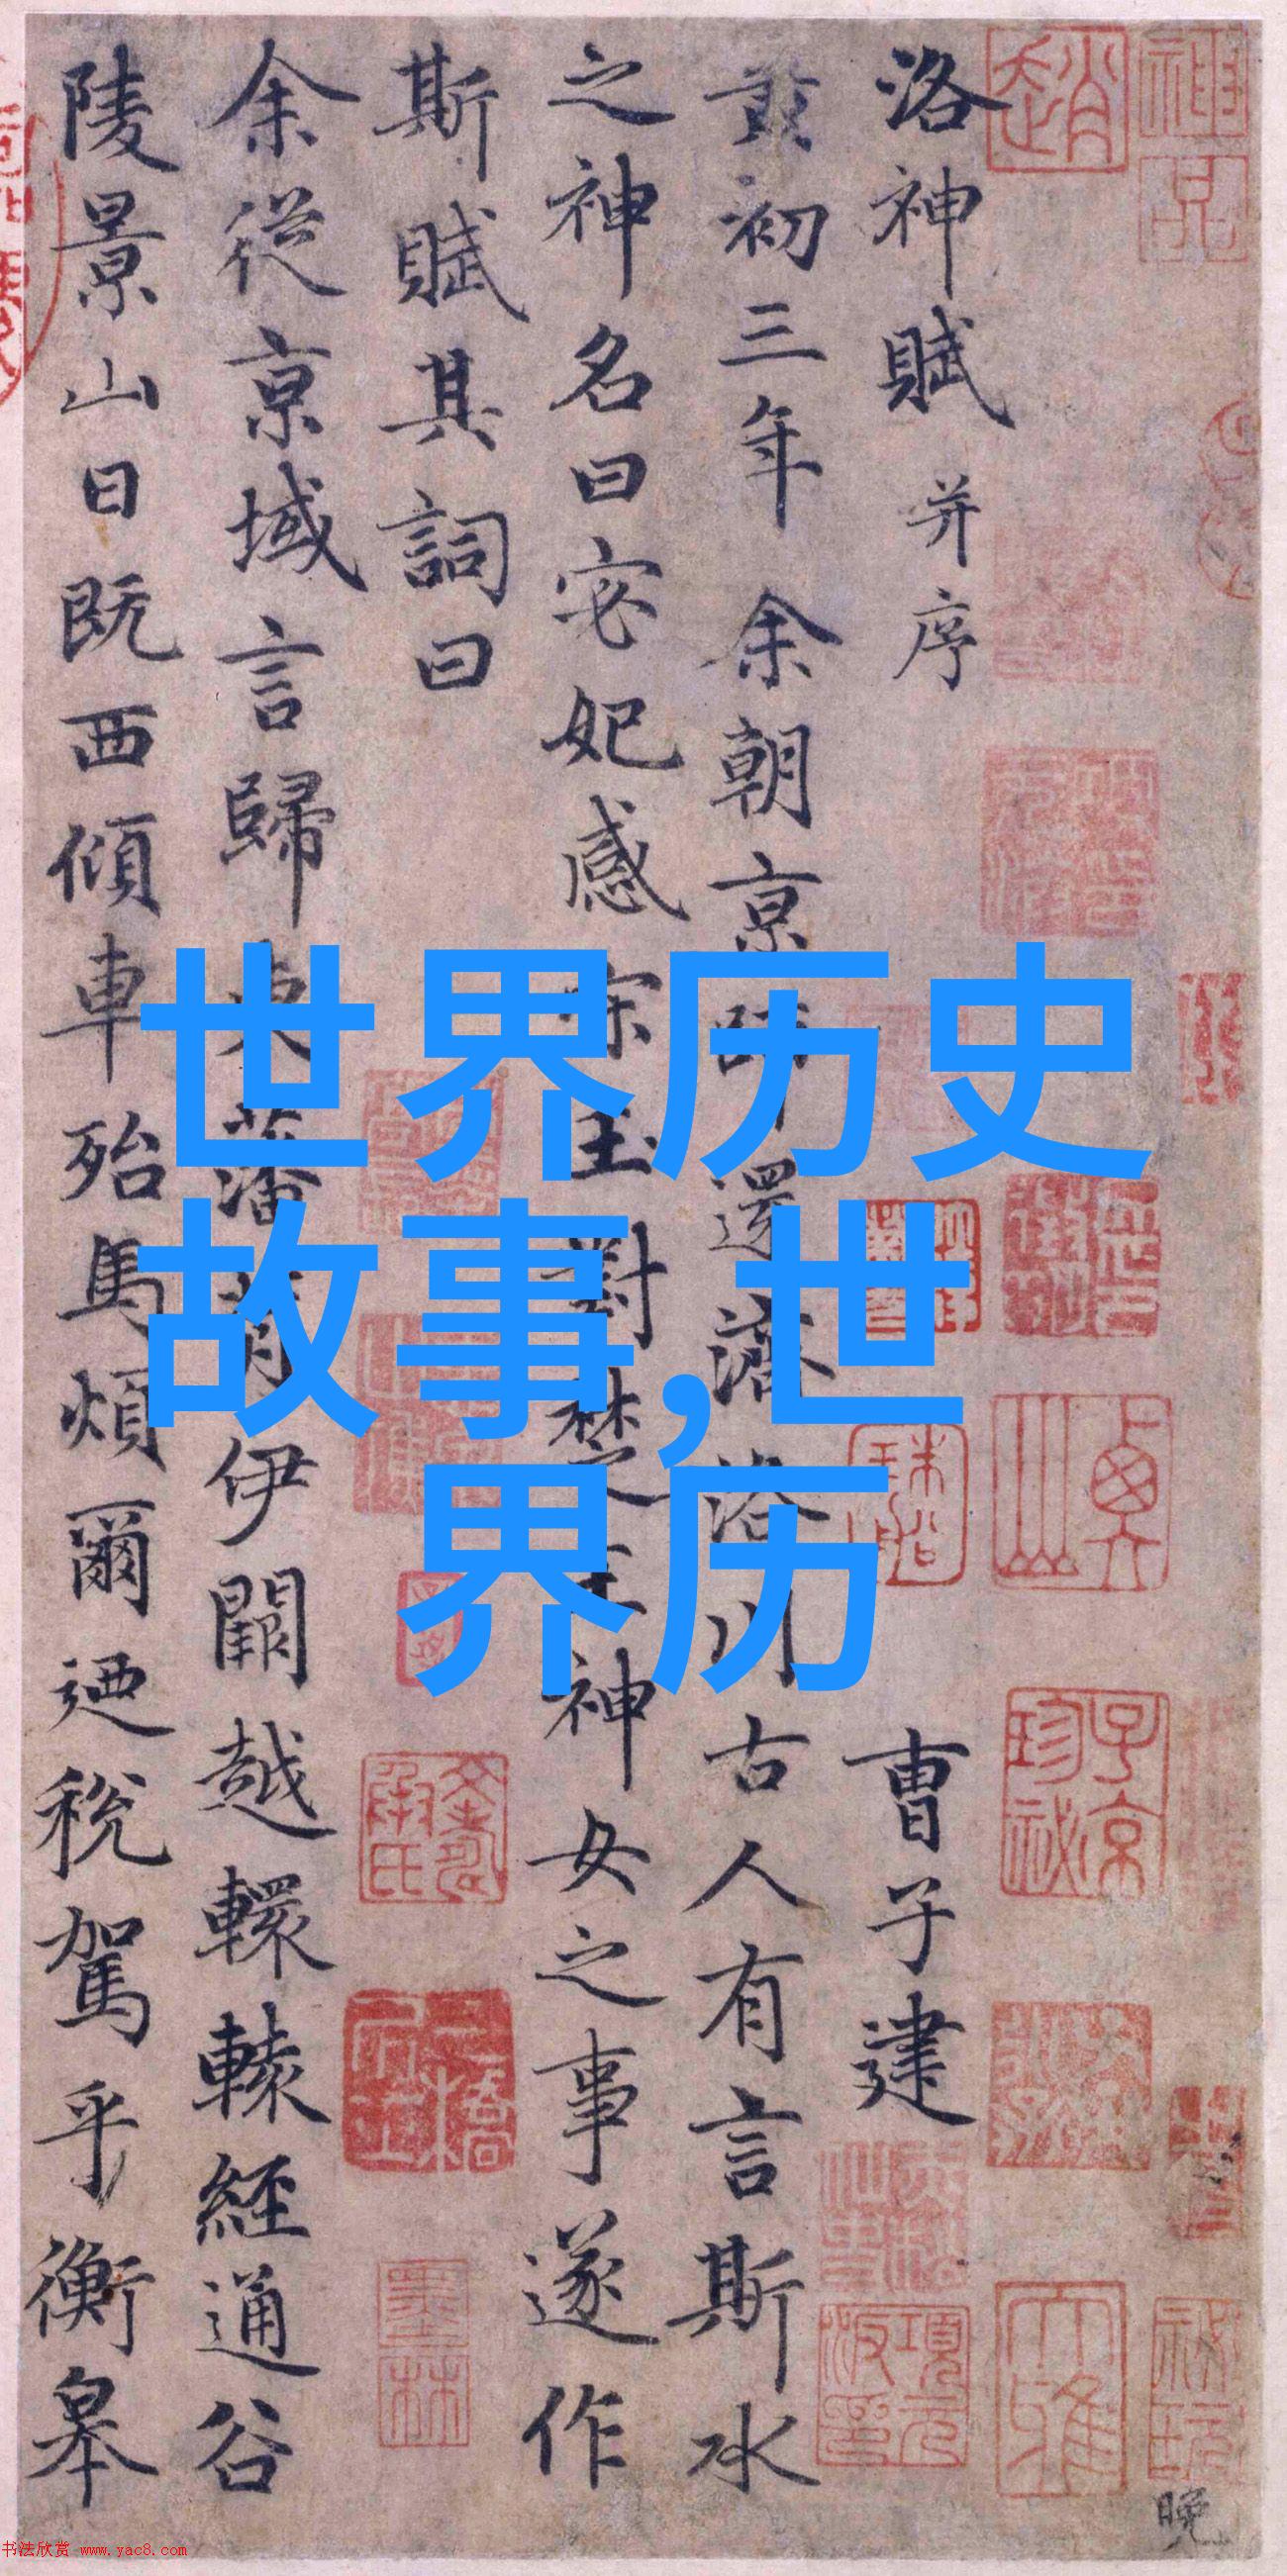 洛神賦 并序 曹子建
黃初三年余朝京師還濟洛川古人有言斯水
之神名曰宓妃感宋玉對楚王神女之事遂作
斯賦其詞曰
余從京域言歸東藩背伊闕越轘轅經通谷
陵景山日既西傾車殆馬煩爾迺稅駕乎衡皋
世界历史
故事,世
界历
趙
子京
珍祕
項元
墨林
晚
书法欣赏 www.yac8.com